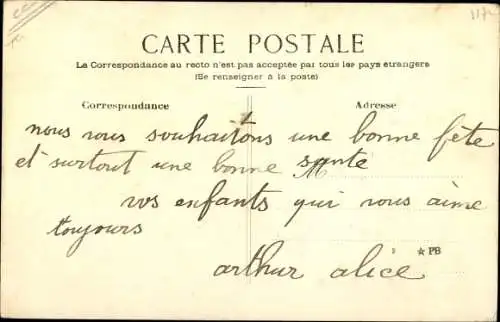 117
CARTE POSTALE
La Correspondance au recto n'est pas acceptée par tous les pays étrangers
(Se renseigner à la poste)
Correspondance
Adresse
nous vous souhaitons une bonne fête
et surtout une bonne santé
vos enfants qui vous aime
toujours
★PB
arthur alice